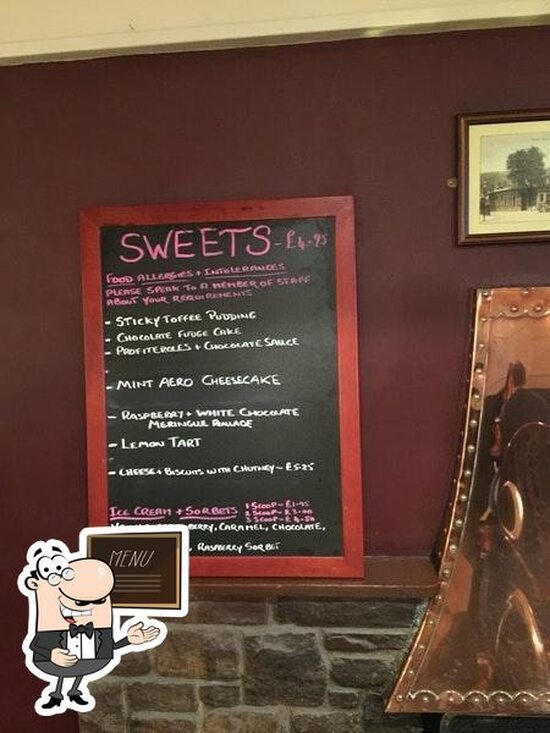 SWEETS - £4.95
FOOD ALLERGIES + INTOLERANCES
PLEASE SPEAK TO A MEMBER OF STAFF
ABOUT YOUR REQUIREMENTS
- STICKY TOFFEE PUDDING
- CHOCOLATE FUDGE CAKE
- PROFITEROLES + CHOCOLATE SAUCE
- MINT AERO CHEESECAKE
- RASPBERRY + WHITE CHOCOLATE
MERINGUE ROULADE
- LEMON TART
- CHEESE + BISCUITS WITH CHUTNEY ~ £5.25
ICE CREAM + SORBETS 1 SCOOP ~ £1.95
2 SCOOP ~ £3.00
3 SCOOP ~ £4.50
CARAMEL, CHOCOLATE,
RASPBERRY SORBET
MENU